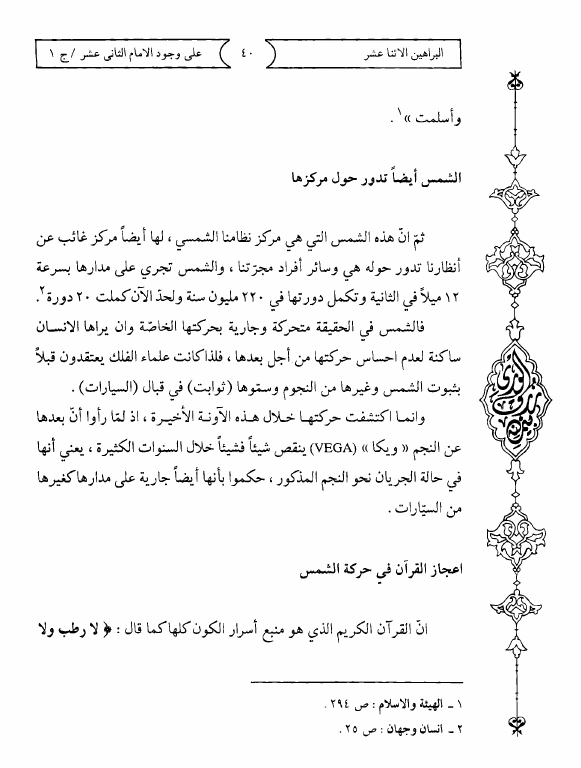 البراهين الاثنا عشر
٤٠
على وجود الامام الثانى عشر / ج ١
وأسلمت »١ .
الشمس أيضاً تدور حول مركزها
ثمّ انّ هذه الشمس التي هي مركز نظامنا الشمسي ، لها أيضاً مركز غائب عن
أنظارنا تدور حوله هي وسائر أفراد مجرّتنا ، والشمس تجري على مدارها بسرعة
١٢ ميلاً في الثانية وتكمل دورتها في ٢٢٠ مليون سنة ولحدّ الآن كملت ٢٠ دورة٢.
فالشمس في الحقيقة متحركة وجارية بحركتها الخاصّة وان يراها الانسان
ساكنة لعدم احساس حركتها من أجل بعدها ، فلذا كانت علماء الفلك يعتقدون قبلاً
بثبوت الشمس وغيرها من النجوم وسمّوها (ثوابت) في قبال (السيارات) .
وانمـا اكتشفت حركتهـا خـلال هـذه الآونـة الأخيـرة ، اذ لمّا رأوا أنّ بعدها
عن النجم « ويكا » (VEGA) ينقص شيئاً فشيئاً خلال السنوات الكثيرة ، يعني أنها
في حالة الجريان نحو النجم المذكور ، حكموا بأنها أيضاً جارية على مدارها كغيرها
من السيّارات .
اعجاز القرآن في حركة الشمس
انّ القرآن الكريم الذي هو منبع أسرار الكون كلها كما قال : ﴿ لا رطب ولا
١ ـ الهيئة والاسلام : ص ٢٩٤ .
٢ ـ انسان وجهان : ص ٢٥ .